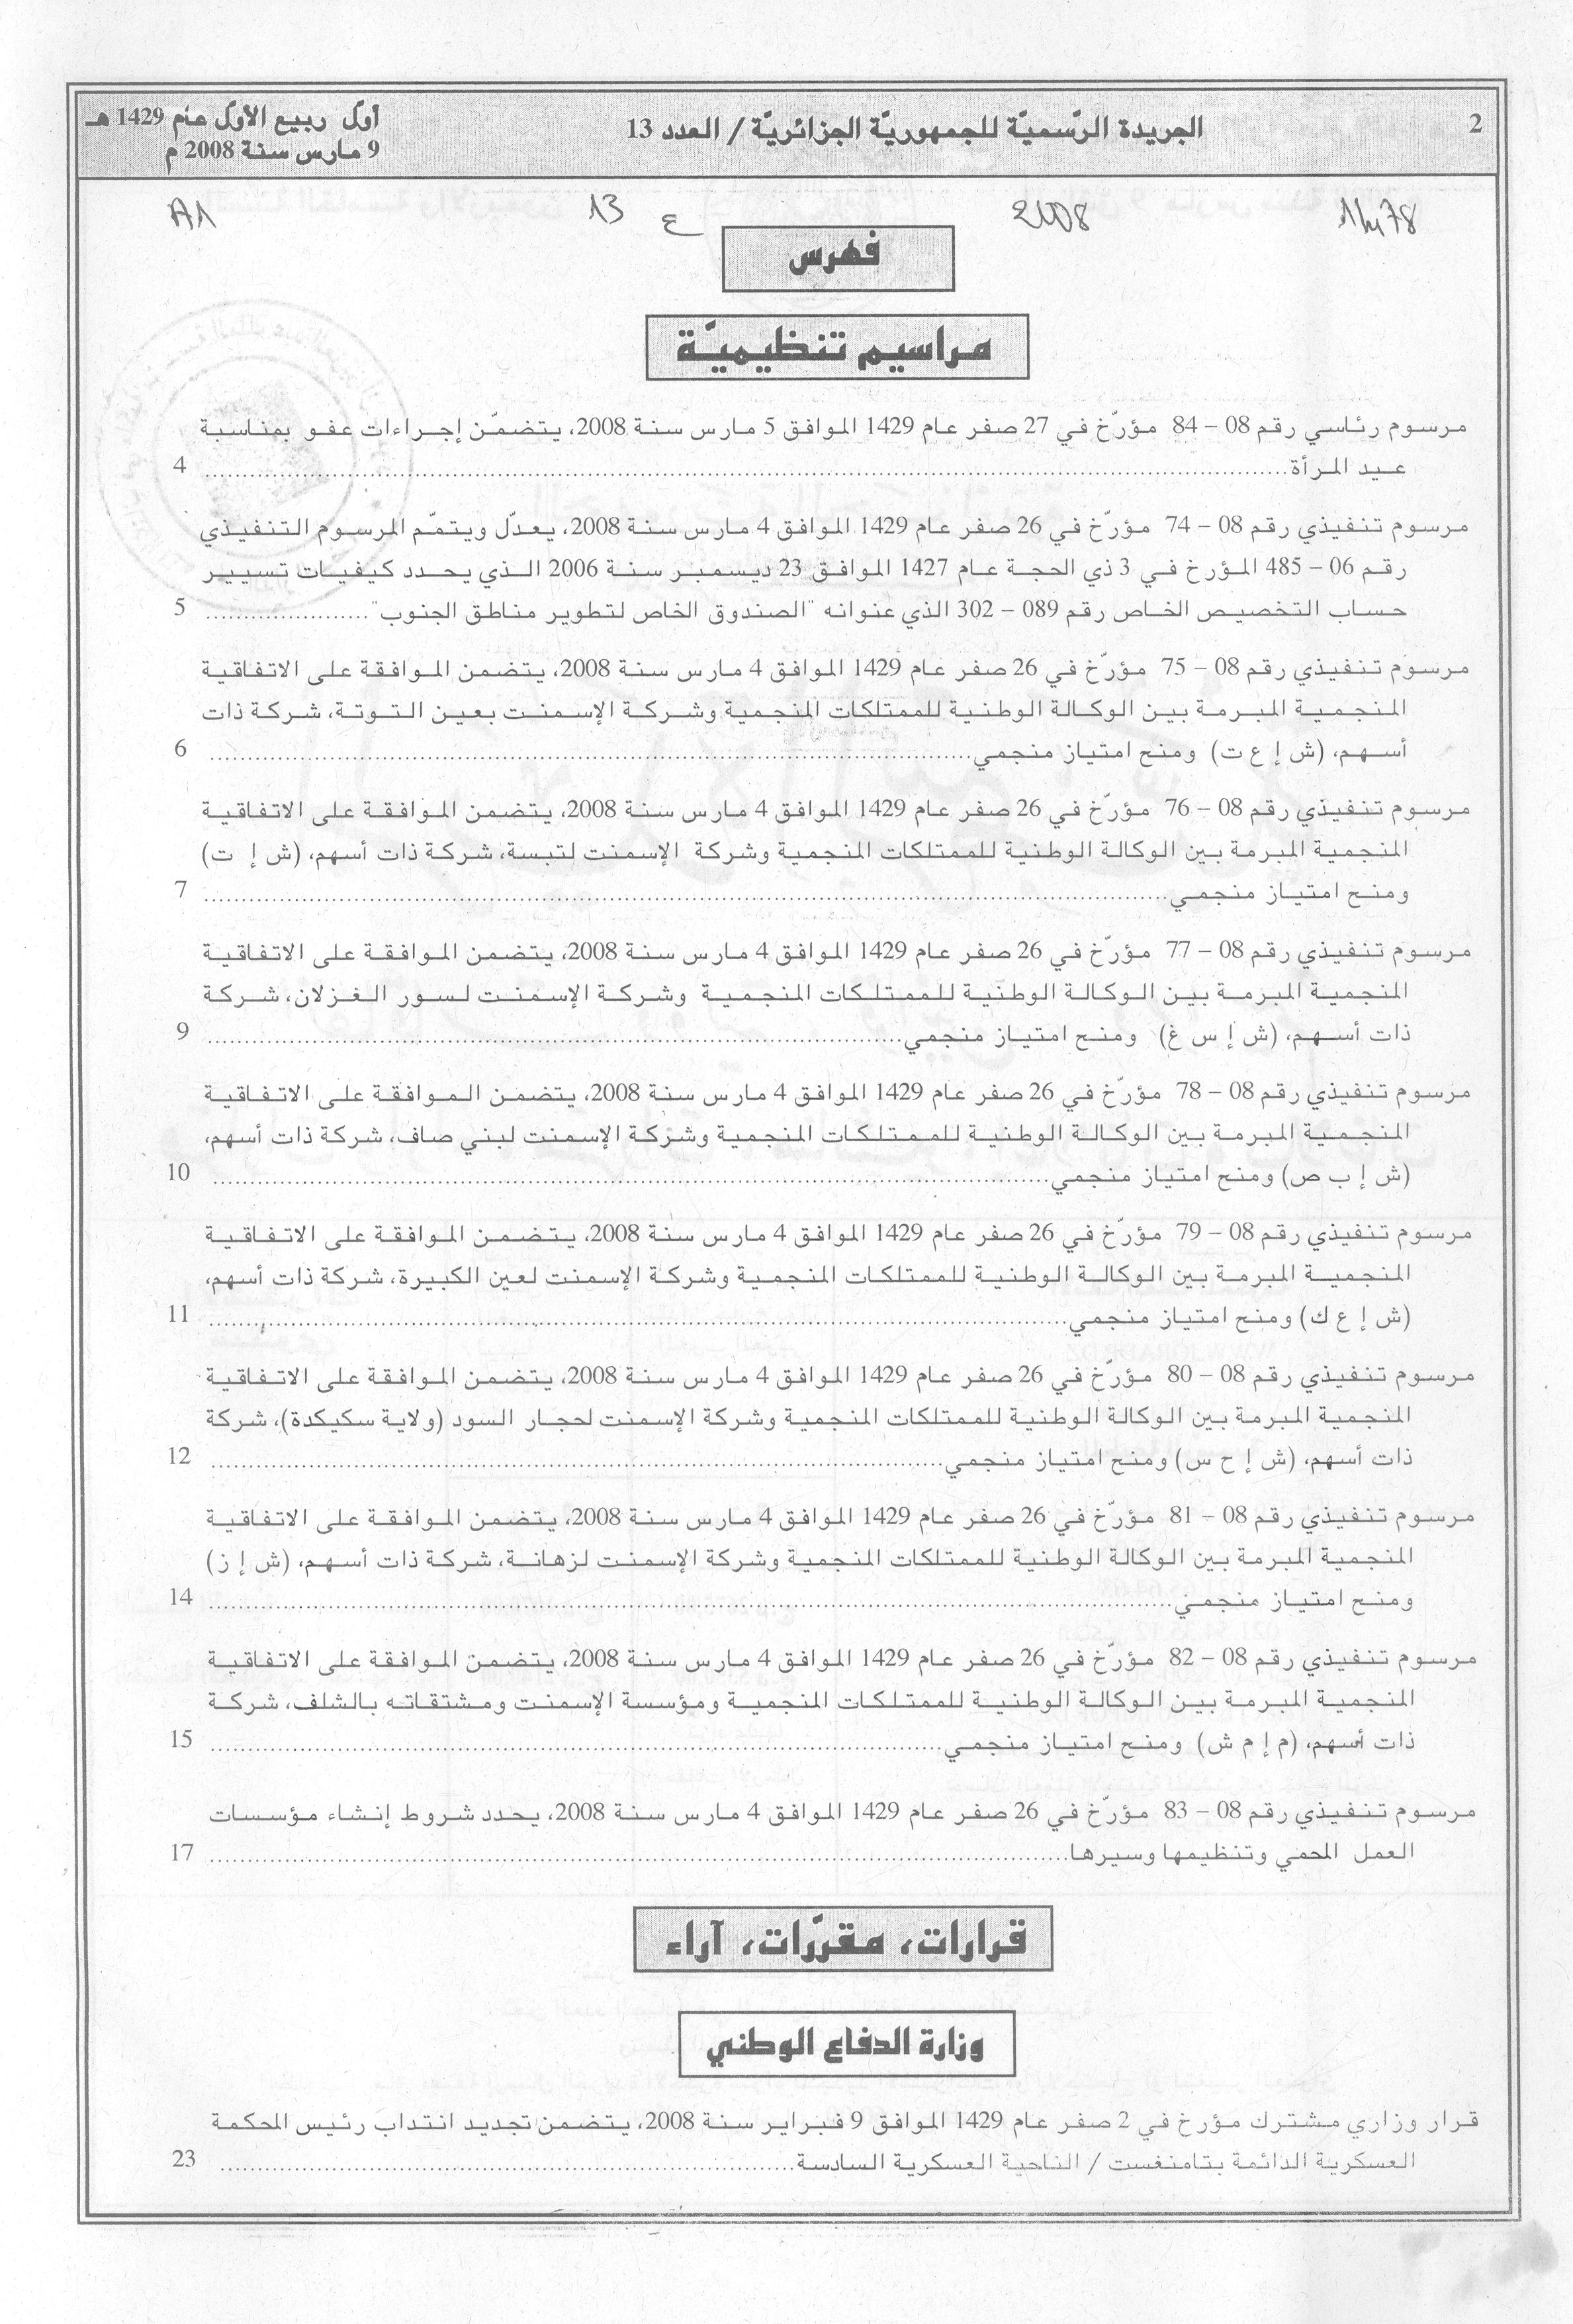 2
الجريدة الرّسميّة للجمهوريّة الجزائريّة / العدد 13
أوّل ربيع الأوّل عام 1429 هـ
9 مارس سنة 2008 م
2008
ع 13
A1
فهرس
مراسيم تنظيميّة
مرسوم رئاسي رقم 08 – 84 مؤرّخ في 27 صفر عام 1429 الموافق 5 مارس سنة 2008، يتضمّن إجراءات عفو بمناسبة
عيد المرأة.................... 4
مرسوم تنفيذي رقم 08 – 74 مؤرّخ في 26 صفر عام 1429 الموافق 4 مارس سنة 2008، يعدّل ويتمّم المرسوم التنفيذي
رقم 06 – 485 المؤرخ في 3 ذي الحجة عام 1427 الموافق 23 ديسمبر سنة 2006 الذي يحدد كيفيات تسيير
حساب التخصيص الخاص رقم 089 – 302 الذي عنوانه "الصندوق الخاص لتطوير مناطق الجنوب".................... 5
مرسوم تنفيذي رقم 08 – 75 مؤرّخ في 26 صفر عام 1429 الموافق 4 مارس سنة 2008، يتضمن الموافقة على الاتفاقية
المنجمية المبرمة بين الوكالة الوطنية للممتلكات المنجمية وشركة الإسمنت بعين التوتة، شركة ذات
أسهم، (ش إ ع ت) ومنح امتياز منجمي.................... 6
مرسوم تنفيذي رقم 08 – 76 مؤرّخ في 26 صفر عام 1429 الموافق 4 مارس سنة 2008، يتضمن الموافقة على الاتفاقية
المنجمية المبرمة بين الوكالة الوطنية للممتلكات المنجمية وشركة الإسمنت لتبسة، شركة ذات أسهم، (ش إ ت)
ومنح امتياز منجمي.................... 7
مرسوم تنفيذي رقم 08 – 77 مؤرّخ في 26 صفر عام 1429 الموافق 4 مارس سنة 2008، يتضمن الموافقة على الاتفاقية
المنجمية المبرمة بين الوكالة الوطنية للممتلكات المنجمية وشركة الإسمنت لسور الغزلان، شركة
ذات أسهم، (ش إ س غ) ومنح امتياز منجمي.................... 9
مرسوم تنفيذي رقم 08 – 78 مؤرّخ في 26 صفر عام 1429 الموافق 4 مارس سنة 2008، يتضمن الموافقة على الاتفاقية
المنجمية المبرمة بين الوكالة الوطنية للممتلكات المنجمية وشركة الإسمنت لبني صاف، شركة ذات أسهم،
(ش إ ب ص) ومنح امتياز منجمي.................... 10
مرسوم تنفيذي رقم 08 – 79 مؤرّخ في 26 صفر عام 1429 الموافق 4 مارس سنة 2008، يتضمن الموافقة على الاتفاقية
المنجمية المبرمة بين الوكالة الوطنية للممتلكات المنجمية وشركة الإسمنت لعين الكبيرة، شركة ذات أسهم،
(ش إ ع ك) ومنح امتياز منجمي.................... 11
مرسوم تنفيذي رقم 08 – 80 مؤرّخ في 26 صفر عام 1429 الموافق 4 مارس سنة 2008، يتضمن الموافقة على الاتفاقية
المنجمية المبرمة بين الوكالة الوطنية للممتلكات المنجمية وشركة الإسمنت لحجار السود (ولاية سكيكدة)، شركة
ذات أسهم، (ش إ ح س) ومنح امتياز منجمي.................... 12
مرسوم تنفيذي رقم 08 – 81 مؤرّخ في 26 صفر عام 1429 الموافق 4 مارس سنة 2008، يتضمن الموافقة على الاتفاقية
المنجمية المبرمة بين الوكالة الوطنية للممتلكات المنجمية وشركة الإسمنت لزهانة، شركة ذات أسهم، (ش إ ز)
ومنح امتياز منجمي.................... 14
مرسوم تنفيذي رقم 08 – 82 مؤرّخ في 26 صفر عام 1429 الموافق 4 مارس سنة 2008، يتضمن الموافقة على الاتفاقية
المنجمية المبرمة بين الوكالة الوطنية للممتلكات المنجمية ومؤسسة الإسمنت ومشتقاته بالشلف، شركة
ذات أسهم، (م إ م ش) ومنح امتياز منجمي.................... 15
مرسوم تنفيذي رقم 08 – 83 مؤرّخ في 26 صفر عام 1429 الموافق 4 مارس سنة 2008، يحدد شروط إنشاء مؤسسات
العمل المحمي وتنظيمها وسيرها.................... 17
قرارات، مقرّرات، آراء
وزارة الدفاع الوطني
قرار وزاري مشترك مؤرخ في 2 صفر عام 1429 الموافق 9 فبراير سنة 2008، يتضمن تجديد انتداب رئيس المحكمة
العسكرية الدائمة بتامنغست / الناحية العسكرية السادسة.................... 23